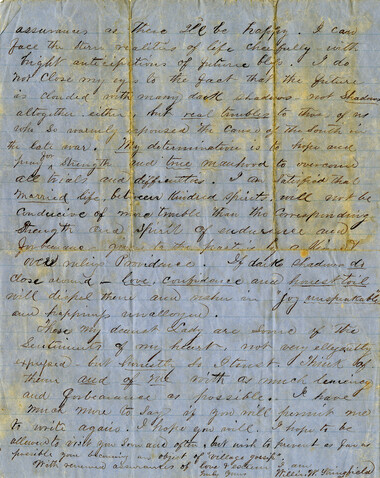 assurances as these I'll be happy. I can
face the stern realities of life cheerfully with
bright anticipations of future bliss. I do
not close my eyes to the fact that the future
is clouded with many dark shadows - not shadows
altogether either but real troubles to those of us
who so warmly espoused the cause of the South in
the late war. My determination is to hope and
pray for strength and true manhood to overcome
all trials and difficulties. I am satisfied that
married life, between kindred spirits will not be
conducive of more trouble than the corresponding
strength and spirit of endurance and
forbearance given to the parties by a kind &
over ruling Providence. If dark shadows do
close around - love, confidence and honest toil
will dispel them and usher in joy unspeakable
and happiness unalloyed.
These my dearest Lady are some of the
sentiments of my heart, not very elegantly
expressed - but honestly so, I trust. Think of
them and of me with as much leniency
and forbearance as possible. I have
much more to say if you will permit me
to write again. I hope you will. I hope to be
allowed to visit you soon and often, but wish to prevent as far as
possible your becoming an object of "village gossip".
With renewed assurances of love & esteem I am
truly yours
William W. Stringfield